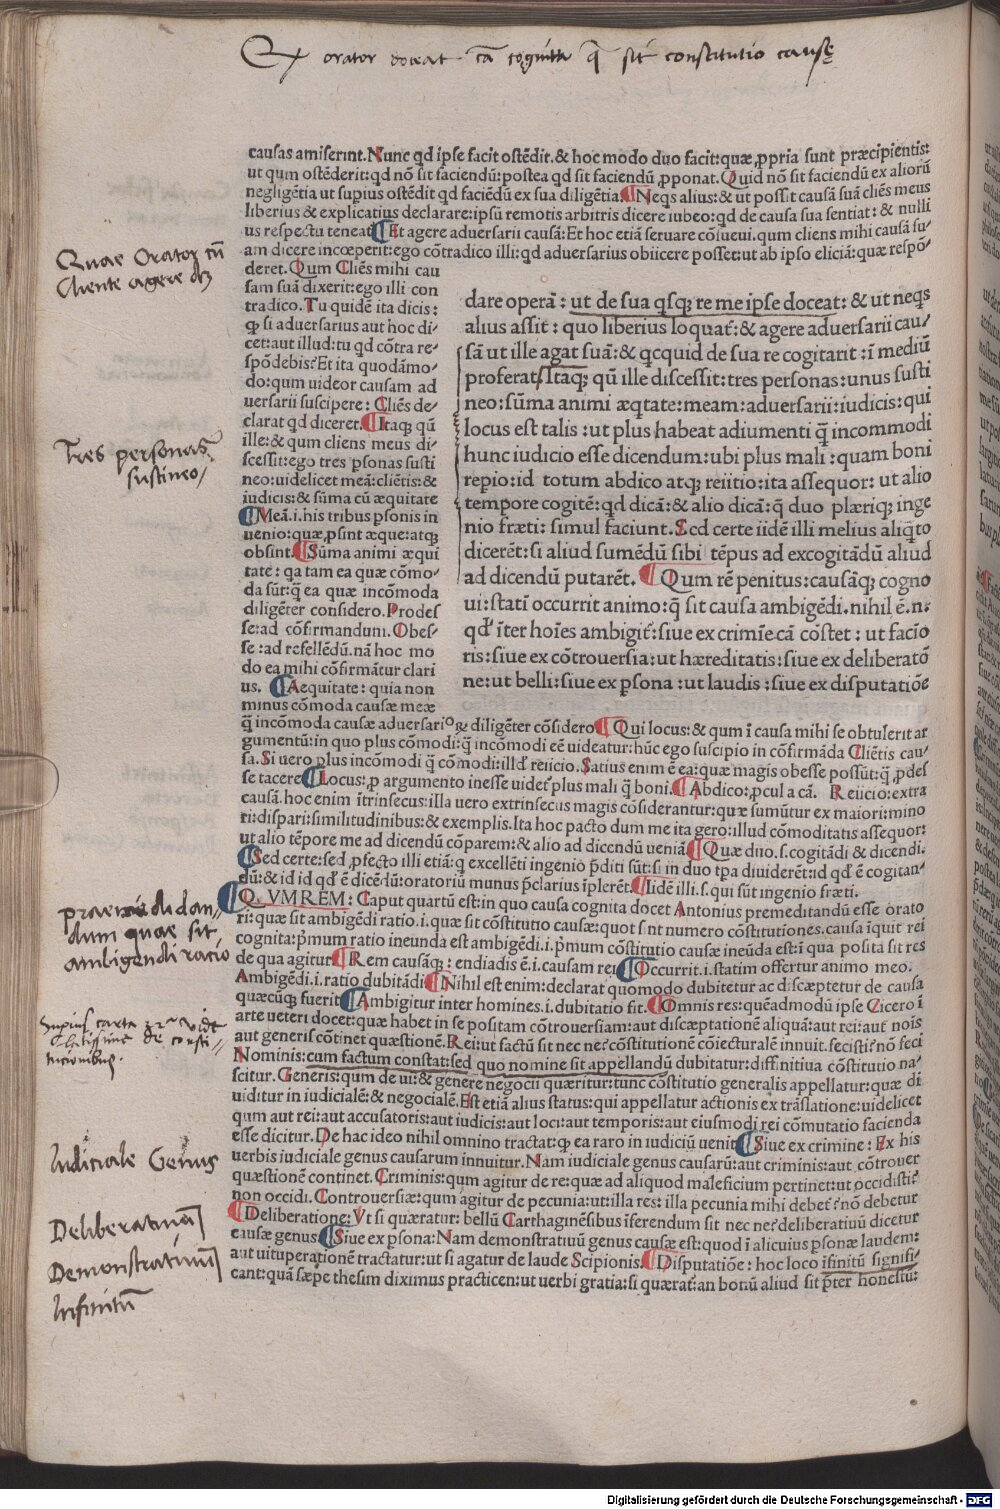 Qx orator doceat cā cognitā q̄ sit constitutio causę
causas amiserint. Nunc qd ipse facit ostēdit. & hoc modo duo facit: quæ ꝓpria sunt præcipientis:
ut qum ostēderit: qd nō sit faciendū: postea qd sit faciendū ꝓponat. Quid nō sit faciendū ex alioꝝ
negligētia ut supius ostēdit qd faciēdū ex sua diligētia. Neqs alius: & ut possit causā suā cliēs meus
liberius & explicatius declarare: ipsū remotis arbitris dicere iubeo: qd de causa sua sentiat: & nulli
us respectu teneat Et agere aduersarii causā: Et hoc etiā seruare cōsueui. qum cliens mihi causā su/
am dicere incœperit: ego cōtradico illi: qd aduersarius obiicere posset: ut ab ipso eliciā: quæ respō/
Quae Orator cū
Cliente agere dꝫ
deret. Qum Cliēs mihi cau
sam suā dixerit: ego illi con
tradico. Tu quidē ita dicis:
ꝙ si aduersarius aut hoc di/
cet: aut illud: tu qd cōtra re/
spōdebis? Et ita quodāmo/
do: qum uideor causam ad
uersarii suscipere: Cliēs de/
clarat qd diceret. Itaqꝫ qū
ille: & qum cliens meus di/
scessit: ego tres psonas susti
neo: uidelicet meā: cliētis: &
iudicis: & sūma cū æquitate
Meā. i. his tribus psonis in
uenio: quæ ꝓsint æque: atqꝫ
obsint. Sūma animi æqui
tate: qa tam ea quæ cōmo/
da sūt: q̄ ea quæ incōmoda
diligēter considero. Prodes
se: ad cōfirmandum. Obes/
se: ad refellēdū. nā hoc mo
do ea mihi cōfirmātur clari
us. Aequitate: quia non
minus cōmoda causæ meæ
Tres personas
sustineo/
dare operā: ut de sua qsqꝫ re me ipse doceat: & ut neqs
alius assit: quo liberius loquat̄: & agere aduersarii cau/
sā ut ille agat suā: & qcquid de sua re cogitarit: ī mediū
proferat. Itaqꝫ qū ille discessit: tres personas: unus susti
neo: sūma animi æqtate: meam: aduersarii: iudicis: qui
locus est talis: ut plus habeat adiumenti q̄ incommodi
hunc iudicio esse dicendum: ubi plus mali: quam boni
repio: id totum abdico atqꝫ reiitio: ita assequor: ut alio
tempore cogitē: qd dicā: & alio dicā: q̄ duo pleriqꝫ inge
nio frēti: simul faciunt. Sed certe iidē illi melius aliq̄to
dicerēt: si aliud sumēdū sibi tēpus ad excogitādū aliud
ad dicendū putarēt. Qum rē penitus: causāqꝫ cogno
ui: statī occurrit animo: q̄ sit causa ambigēdi. nihil ē. n.
qd īter hoīes ambigit̄: siue ex crimīe cā cōstet: ut facīo
ris: siue ex cōtrouersia: ut hæreditatis: siue ex deliberatō
ne: ut belli: siue ex psona: ut laudis: siue ex disputatiōe
q̄ incōmoda causæ aduersarioꝝ diligēter cōsidero Qui locus: & qum ī causa mihi se obtulerit ar
gumentū: in quo plus cōmodi: q̄ incōmodi eē uideatur: hūc ego suscipio in cōfirmāda Cliētis cau/
sa. Si uero plus incōmodi q̄ cōmodi: illd̄ reiicio. Satius enim ē ea: quæ magis obesse possūt: q̄ ꝓdes
se tacere Locus: ꝓ argumento inesse uidet̄ plus mali q̄ boni. Abdico: ꝓcul a cā. Reiicio: extra
causā. hoc enim ītrinsecus: illa uero extrinsecus magis cōsiderantur: quæ sumūtur ex maiori: mino
ri: dispari: similitudinibus: & exemplis. Ita hoc pacto dum me ita gero: illud cōmoditatis assequor:
ut alio tēpore me ad dicendū cōparem: & alio ad dicendū ueniā. Quæ duo. s. cogitādi & dicendi.
Sed certe: sed ꝓfecto illi etiā: q excellēti ingenio p̄diti sūt: si in duo tpa diuiderēt: id qd̄ ē cogitan/
dū: & id id qd̄ ē dicēdū: oratoriū munus p̄clarius īplerēt. Iidē illi. s. qui sūt ingenio fræti.
QVM REM: Caput quartū est: in quo causa cognita docet Antonius premeditandū esse orato
ri: quæ sit ambigēdi ratio. i. quæ sit cōstitutio causæ: quot sint numero cōstitutiones. causa īquit rei
cognita: p̄mum ratio ineunda est ambigēdi. i. p̄mum cōstitutio causæ ineūda est: ī qua posita sit res
de qua agitur Rem causāqꝫ: endiadis ē. i. causam rei Occurrit. i. statim offertur animo meo.
praemeditan/
dum quae sit
ambigendi ratio
Ambigēdi. i. ratio dubitādi Nihil est enim: declarat quomodo dubitetur ac discæptetur de causa
quæcūqꝫ fuerit Ambigitur inter homines. i. dubitatio fit. Omnis res: quēadmodū ipse Cicero ī
arte ueteri docet: quæ habet in se positam cōtrouersiam: aut discæptationē aliquā: aut rei: aut nois
aut generis cōtinet quæstionē. Rei: ut factū sit nec ne? cōstitutionē cōiecturalē innuit. fecisti? nō feci
Supius carta
Clarissime de consti/
tutionibus.
Nominis: cum factum constat: sed quo nomine sit appellandū dubitatur: diffinitiua cōstitutio na/
scitur. Generis: qum de ui: & genere negocii quæritur: tunc cōstitutio generalis appellatur: quæ di
uiditur in iudicialē: & negocialē. Est etiā alius status: qui appellatur actionis ex trāslatione: uidelicet
qum aut rei: aut accusatoris: aut iudicis: aut loci: aut temporis: aut eiusmodi rei cōmutatio facienda
esse dicitur. De hac ideo nihil omnino tractat: ꝙ ea raro in iudiciū uenit Siue ex crimine: Ex his
uerbis iudiciale genus causarum innuitur. Nam iudiciale genus causarū: aut criminis: aut cōtrouer
quæstionē continet. Criminis: qum agitur de re: quæ ad aliquod maleficium pertinet: ut occidisti?
non occidi. Controuersiæ: qum agitur de pecunia: ut: illa res: illa pecunia mihi debet? nō debetur
Iudiciale Genus
Deliberatione: Vt si quæratur: bellū Carthaginēsibus īferendum sit nec ne? deliberatiuū dicetur
causæ genus: Siue ex psona: Nam demonstratiuū genus causæ est: quod ī alicuius psonæ laudem:
aut uituperationē tractatur: ut si agatur de laude Scipionis. Disputatiōe: hoc loco ifinitū signifi/
cant: quā sæpe thesim diximus practicen: ut uerbi gratia: si quærat̄: an bonū aliud sit p̄ter honestū:
Deliberatiuū
Demonstratiuum
Infinitū
Digitalisierung gefördert durch die Deutsche Forschungsgemeinschaft - DFG